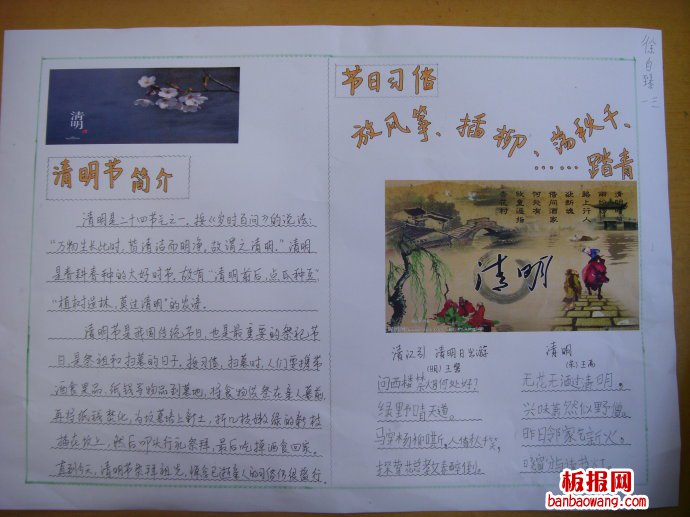 清明
清明节简介
清明是二十四节气之一。按《岁时百问》的说法：
“万物生长此时，皆清洁而明净，故谓之清明。”清明
是春耕春种的大好时节，故有“清明前后，点瓜种豆”
“植树造林，莫过清明”的农谚。
清明节是我国传统节日，也是最重要的祭祀节
日，是祭祖和扫墓的日子。按习俗，扫墓时，人们要携带
酒食果品、纸钱等物品到墓地，将食物供祭在亲人墓前，
再将纸钱焚化，为坟墓培上新土，折几枝嫩绿的新枝
插在坟上，然后叩头行礼祭拜，最后吃掉酒食回家。
直到今天，清明节祭拜祖先，悼念已逝亲人的习俗仍很盛行。
节日习俗
放风筝、插柳、荡秋千、
……踏青
清明
路上行人
欲断魂
借问酒家
何处有
牧童遥指
杏花村
清明
清江引 清明日出游
(明)王磐
问西楼禁烟何处好？
绿野晴天道。
马穿杨柳嘶，人倚秋千笑，
探莺花总教春醉倒。
清明
(宋)王禹
无花无酒过清明，
兴味萧然似野僧。
昨日邻家乞新火，
一三
板报网
banbaowang.com